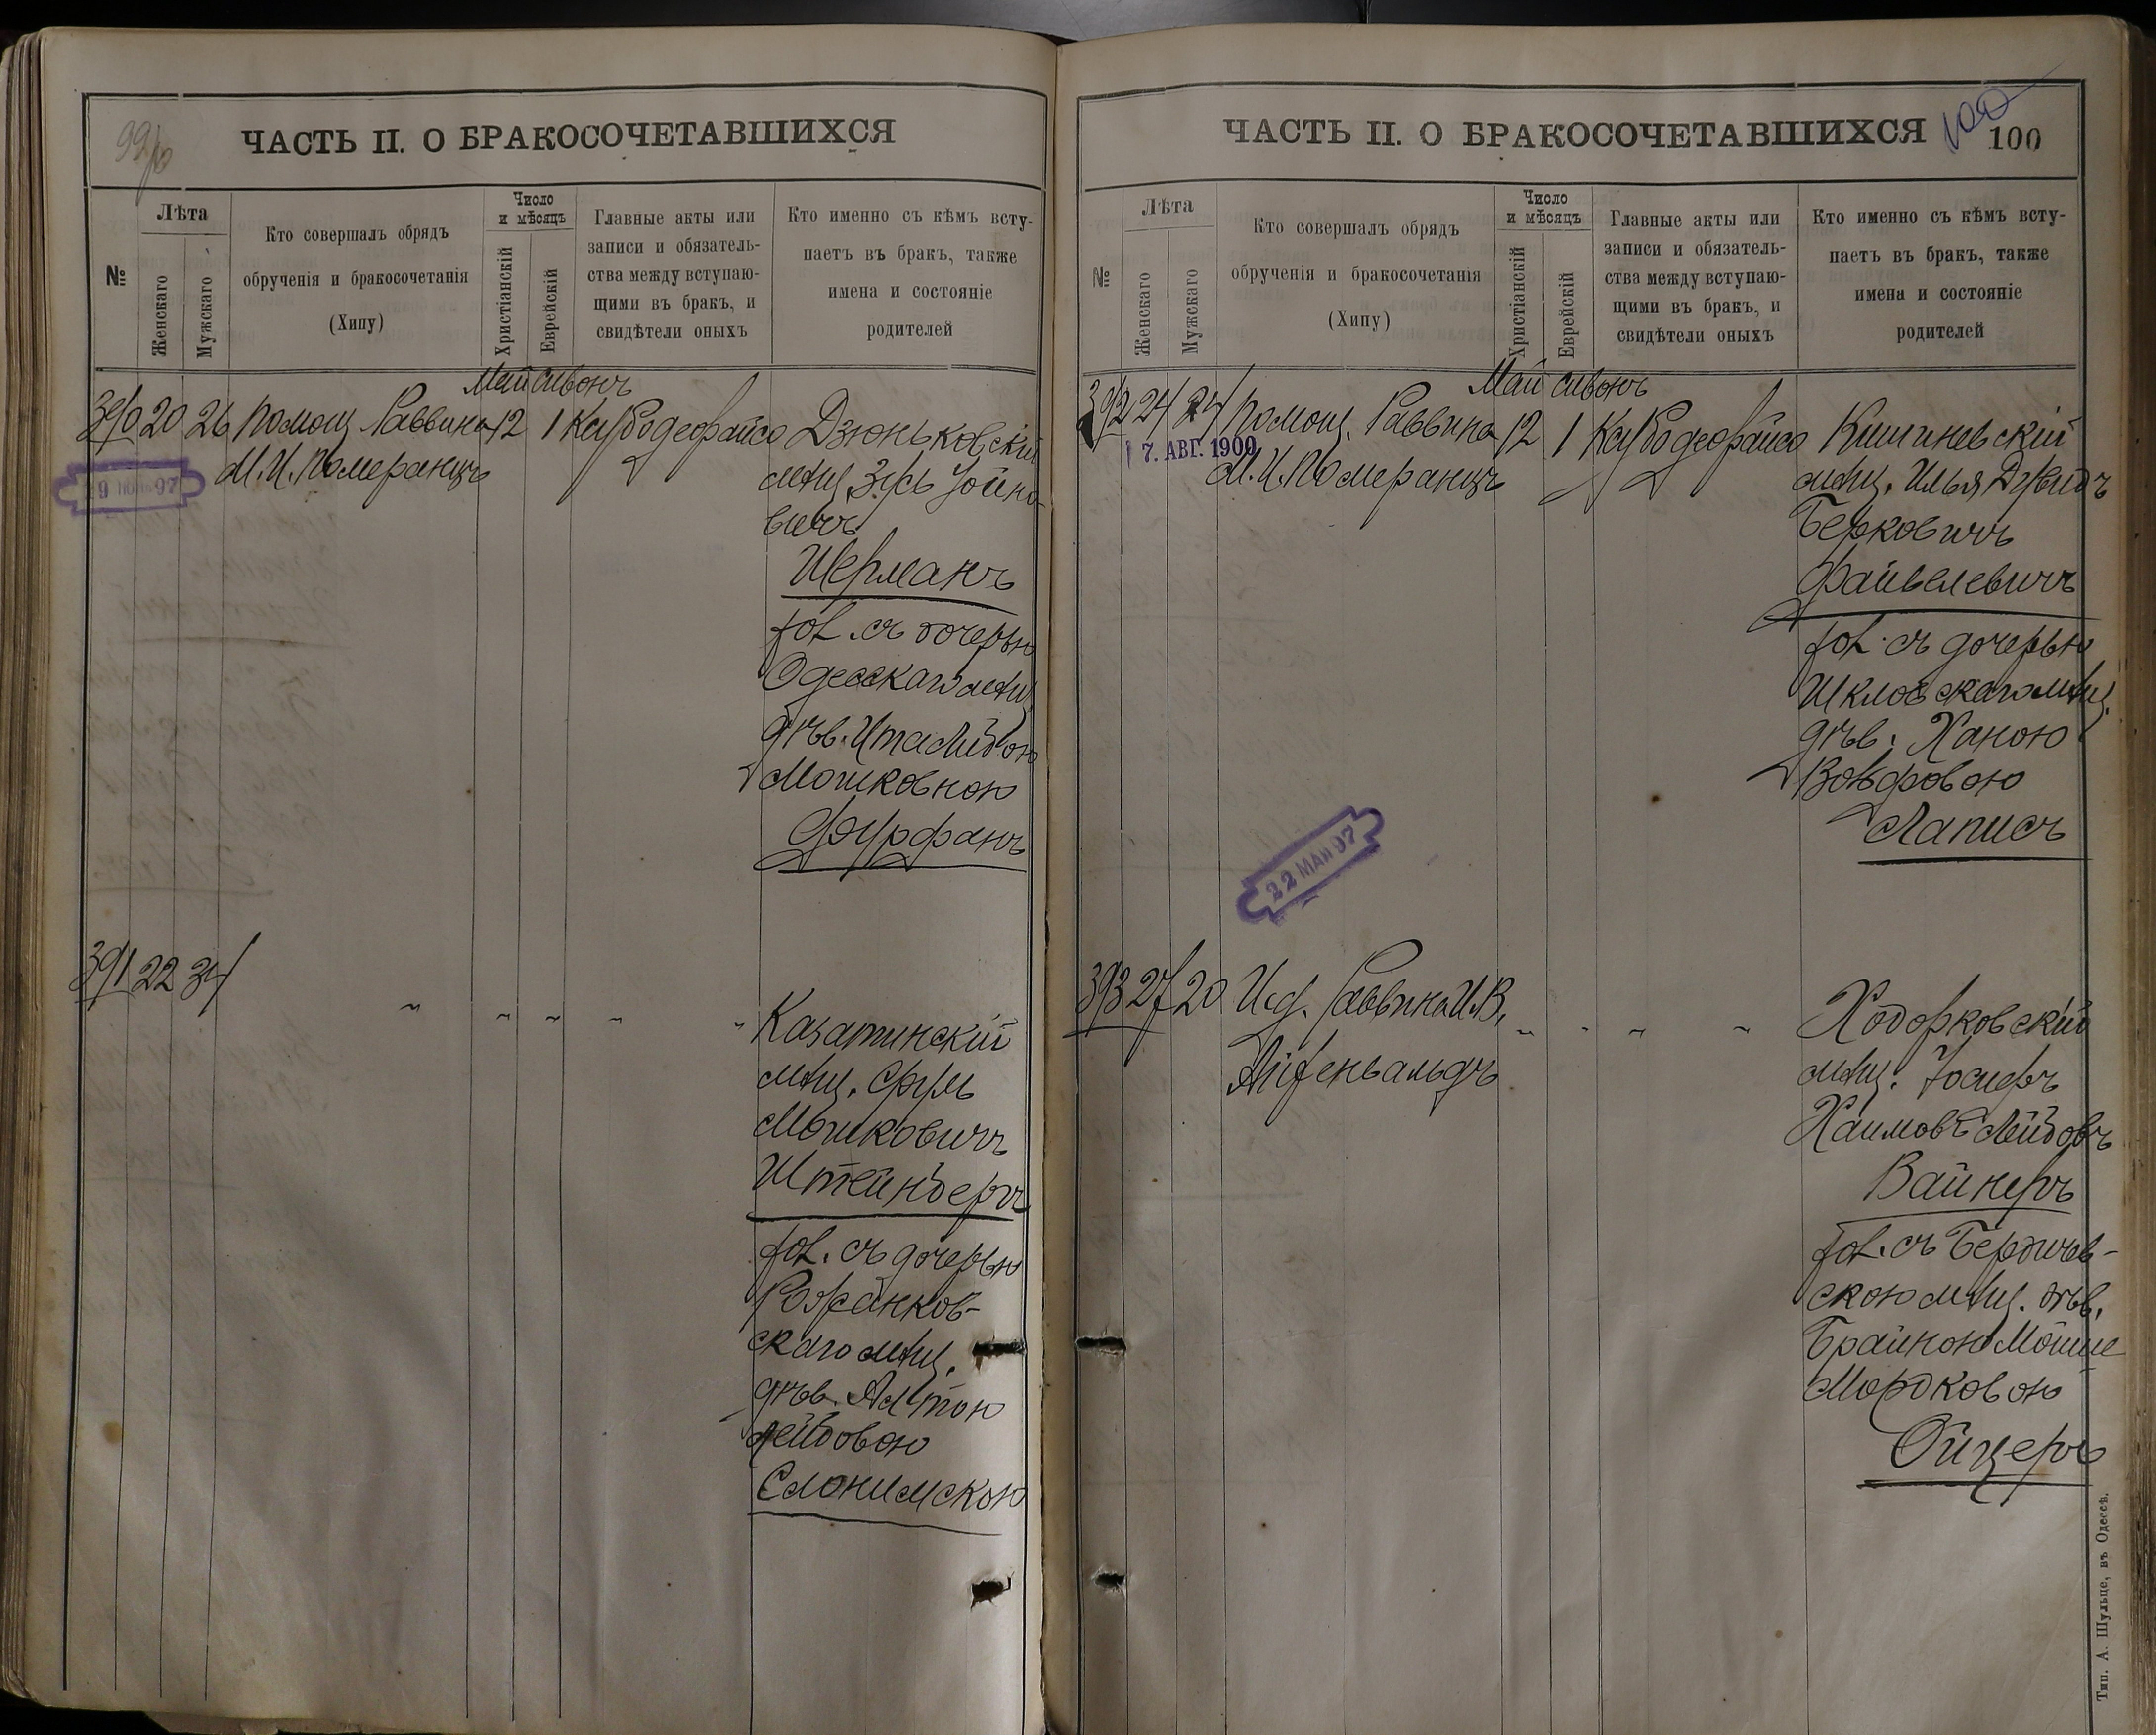 99/б
ЧАСТЬ II. О БРАКОСОЧЕТАВШИХСЯ
№
Лѣта
Женскаго
Мужскаго
Кто совершалъ обрядъ
обрученія и бракосочетанія
(Хипу)
Число
и мѣсяцъ
Христіанскій
Еврейскій
Главные акты или
записи и обязатель-
ства между вступаю-
щими въ бракъ, и
свидѣтели оныхъ
Кто именно съ кѣмъ всту-
паетъ въ бракъ, также
имена и состояніе
родителей
Май сивонъ
390 20 26 помощ. Раввина 12 1 Дзюньковскій
М. И. Померанцъ
мѣщ. Зусь Хойно-
вичъ
Шерманъ
хол. съ дочерью
Одесскаго мѣщ.
дѣв. Ита Лейбою
Мошковною
Фурфанъ
391 22 34
Казатинскій
мѣщ. Сруль
Мошковичъ
Штейнбергъ
хол. съ дочерью
скаго мѣщ.
дѣв.
Лейбовою
Слонимскою
ЧАСТЬ II. О БРАКОСОЧЕТАВШИХСЯ
100
100
№
Лѣта
Женскаго
Мужскаго
Кто совершалъ обрядъ
обрученія и бракосочетанія
(Хипу)
Число
и мѣсяцъ
Христіанскій
Еврейскій
Главные акты или
записи и обязатель-
ства между вступаю-
щими въ бракъ, и
свидѣтели оныхъ
Кто именно съ кѣмъ всту-
паетъ въ бракъ, также
имена и состояніе
родителей
Май сивонъ
392 24 24 помощ. Раввина 12 1 Кишиневскій
17. АВГ. 1900
М. И. Померанцъ
мѣщ. Илья Дувидъ
Берковичъ
Файвелевичъ
хол. съ дочерью
Шкловскаго мѣщ.
дѣв. Ханою
Вольфовою
Лаписъ
22 МАЙ 97
393 27 20 Исд. Раввина И. В.
Айзенвальдъ
Ходорковскій
мѣщ. Іосифъ
Хаимовъ Лейбовъ
Вайнеръ
хол. съ Бердичев-
скою мѣщ. дѣв.
Брайною Мойше
Мордковою
Ойцеръ
Тип. А. Шульце, въ Одессѣ.